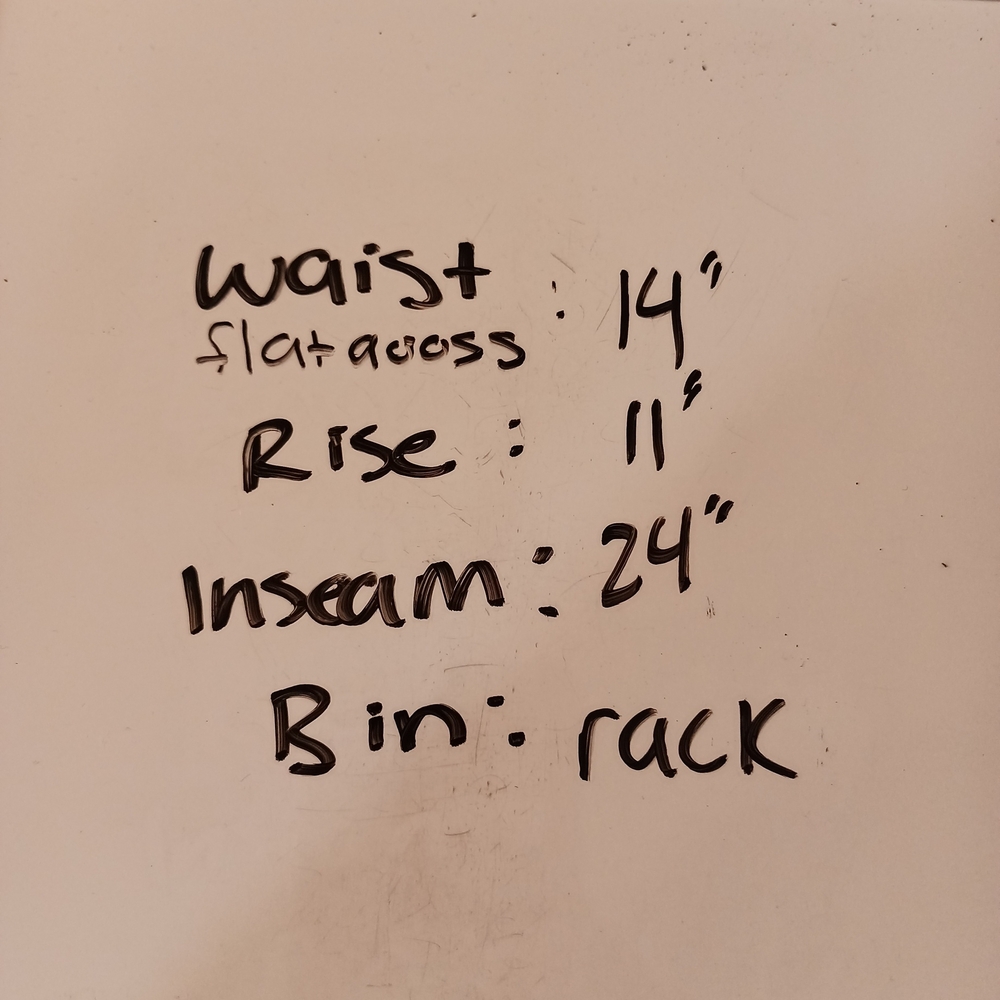 Waist : 14"
flat across
Rise : 11"
Inseam : 24"
Bin : rack